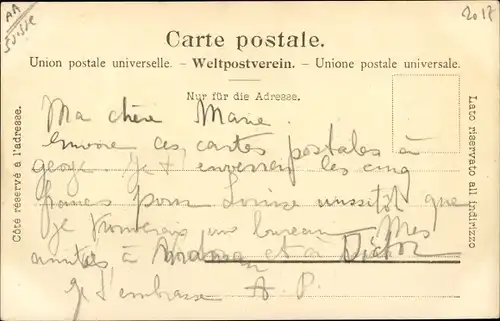 AA
Suisse
2017
Carte postale.
Union postale universelle. – Weltpostverein. – Unione postale universale.
Nur für die Adresse.
Côté réservé à l'adresse.
Lato riservato all indirizzo
Ma chère Marie
Envoie ces cartes postales à
George. Je t'enverrai les cinq
francs pour Louise aussitôt que
je trouverai un bureau. Mes
amitiés à et à
Je t'embrasse A. P.